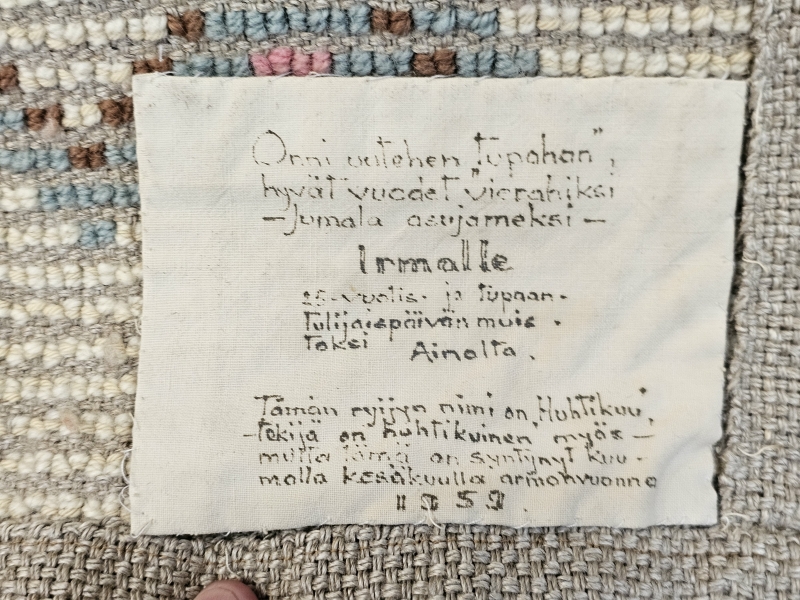 Onni uutehen "tupahan",
hyvät vuodet "vierahiksi
– Jumala asujameksi –
Irmalle
25-vuotis- ja tupaan-
tulijaispäivän muis-
toksi Ainolta.
Tämän ryijyn nimi on Huhtikuu,
– tekijä on huhtikuinen myös –
mutta tämä on syntynyt kuu-
malla kesäkuulla armonvuonna
1959.